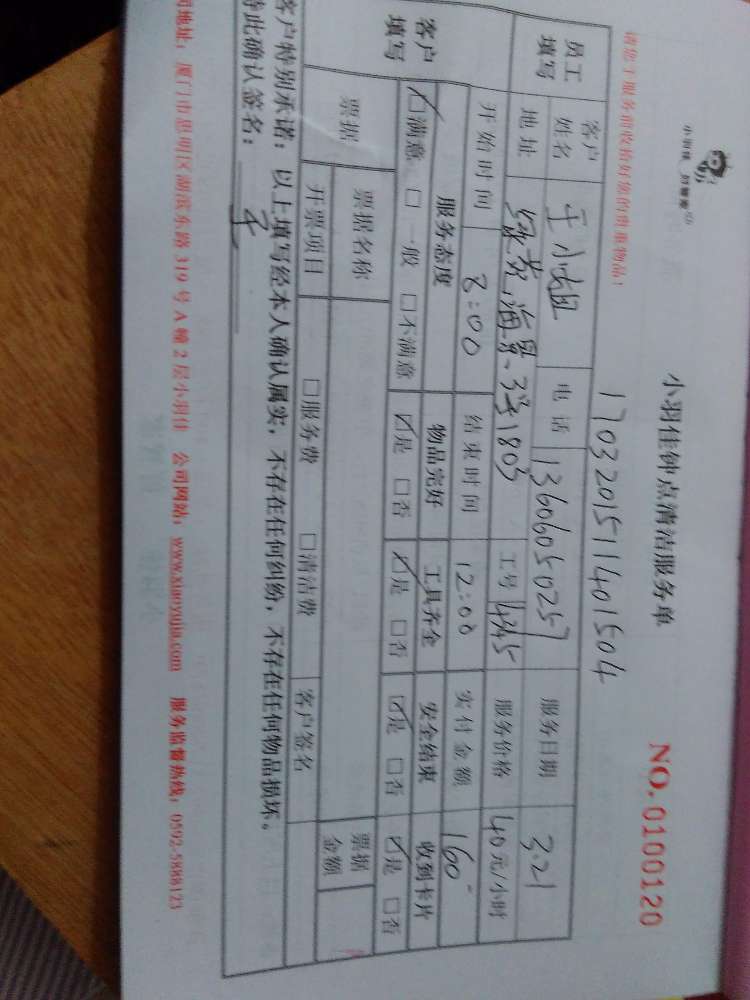 小羽佳钟点清洁服务单
NO. 0100120
1703201511401504
请您于服务前收拾好您的贵重物品！
员工填写 客户姓名 王小姐 电话 13606050257 服务日期 3.21
地址 海景 3号1803 工号 4345 服务价格 40元/小时
开始时间 8:00 结束时间 12:00 实付金额 160
客户填写 服务态度 物品完好 工具齐全 安全结束 收到卡片
☑满意 □一般 □不满意 ☑是 □否 ☑是 □否 ☑是 □否 ☑是 □否
票据 票据名称 票据金额
开票项目 □服务费 □清洁费 客户签名
客户特别承诺：以上填写经本人确认属实，不存在任何纠纷，不存在任何物品损坏。
此确认签名：
司地址：厦门市思明区湖滨东路 319 号 A 幢 2 层小羽佳 公司网站：www.xiaoyujia.com 服务监督热线：0592-5888123